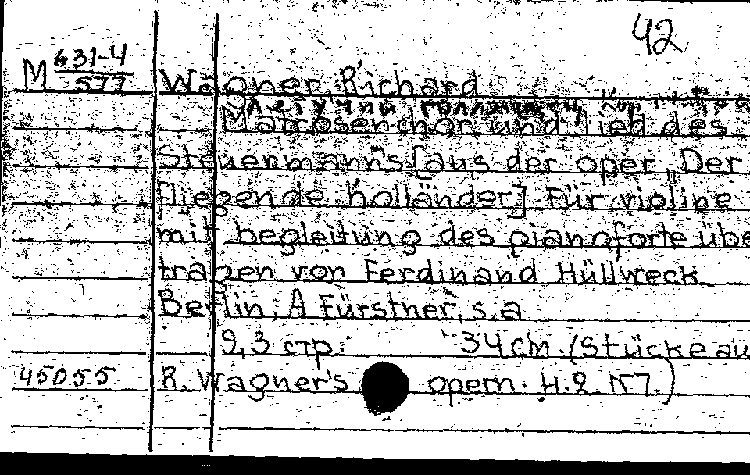 42
M 631-4/577 Wagner, Richard
Летучий голландец
Matrosenchor und lied des
Steuermanns [aus der oper „Der
fliegende holländer] Für violine
mit begleitung des pianoforte übe
tragen von Ferdinand Hüllweck
Berlin, A. Fürstner, s.a
9, 3 стр. 34 cm. (Stücke au
45055 R. Wagner's opern. H.2. N7.)